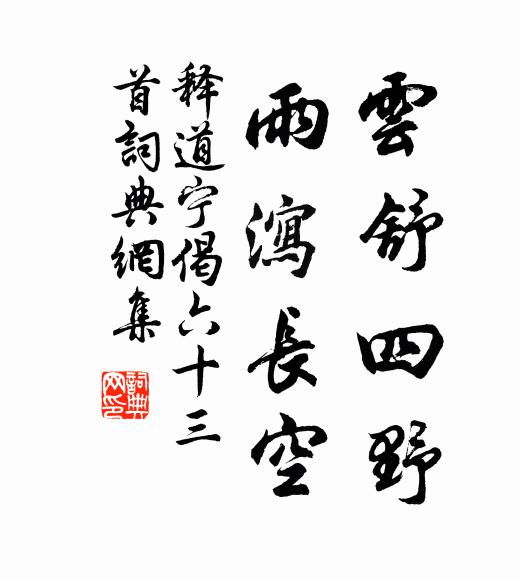 雲舒四野
雨瀉長空
释道宁偈六十三
首詞典網集
詞典
网印